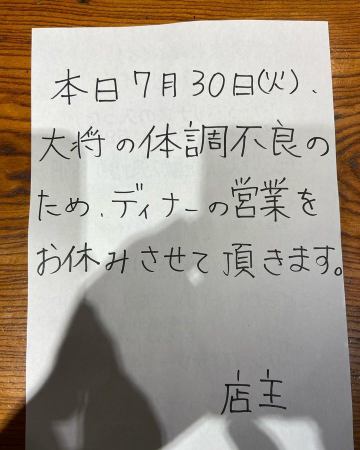 本日7月30日(火)、
大将の体調不良の
ため、ディナーの営業を
お休みさせて頂きます。
店主